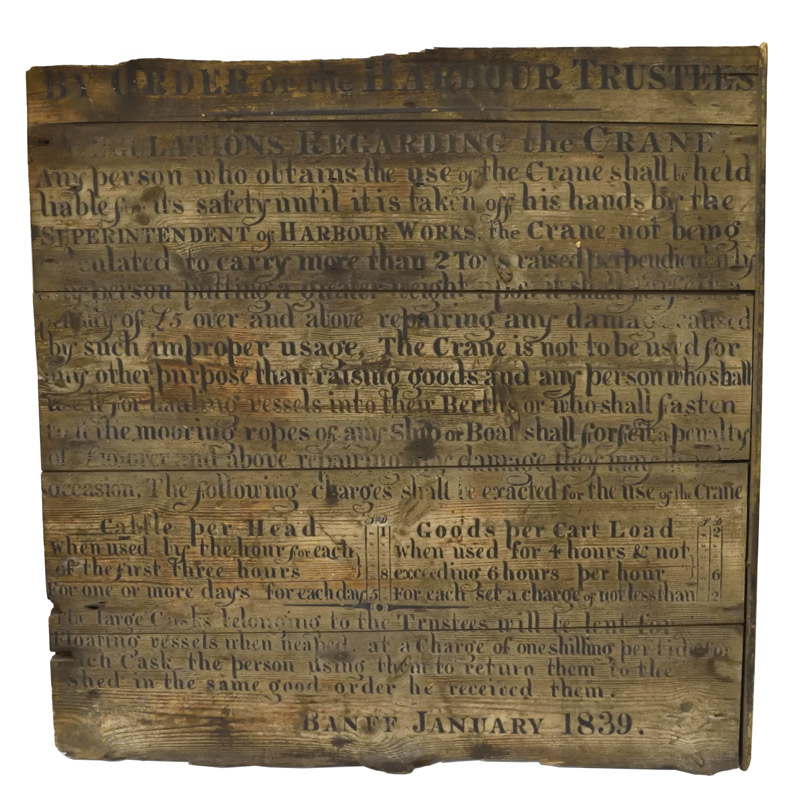 BY ORDER of the HARBOUR TRUSTEES
REGULATIONS REGARDING the CRANE
Any person who obtains the use of the Crane shall be held
liable for its safety until it is taken off his hands by the
SUPERINTENDENT of HARBOUR WORKS, the Crane not being
to carry more than 2 Tons raised perpendicularly
any person putting a greater weight upon it shall forfeit a
penalty of £5 over and above repairing any damage caused
by such improper usage, The Crane is not to be used for
any other purpose than raising goods and any person who shall
use it for hauling vessels into their Berths or who shall fasten
to it the mooring ropes of any Ship or Boat shall forfeit a penalty
of over and above repairing any damage they may
occasion, The following charges shall be exacted for the use of the Crane
Cattle per Head
when used by the hour for each 1
of the first three hours 8
For one or more days for each day 5
Goods per Cart Load
when used for 4 hours & not 2
exceeding 6 hours per hour 6
For each set a charge of not less than 2
The large Casks belonging to the Trustees will be lent for
floating vessels when neaped, at a Charge of one shilling per tide for
each Cask the person using them to return them to the
shed in the same good order he received them.
BANFF JANUARY 1839.